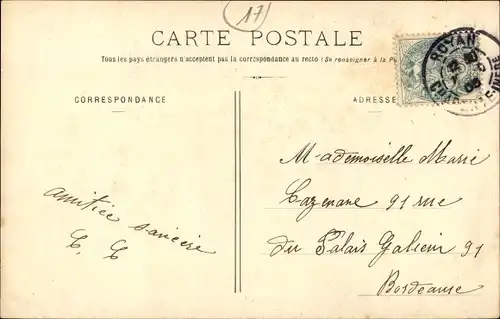 17
CARTE POSTALE
Tous les pays étrangers n'acceptent pas la correspondance au recto (Se renseigner à la P
CORRESPONDANCE
ADRESSE
ROYAN
Mademoiselle Marie
Cazenave 91 rue
du Palais Galien 91
Bordeaux
amitiée sincère